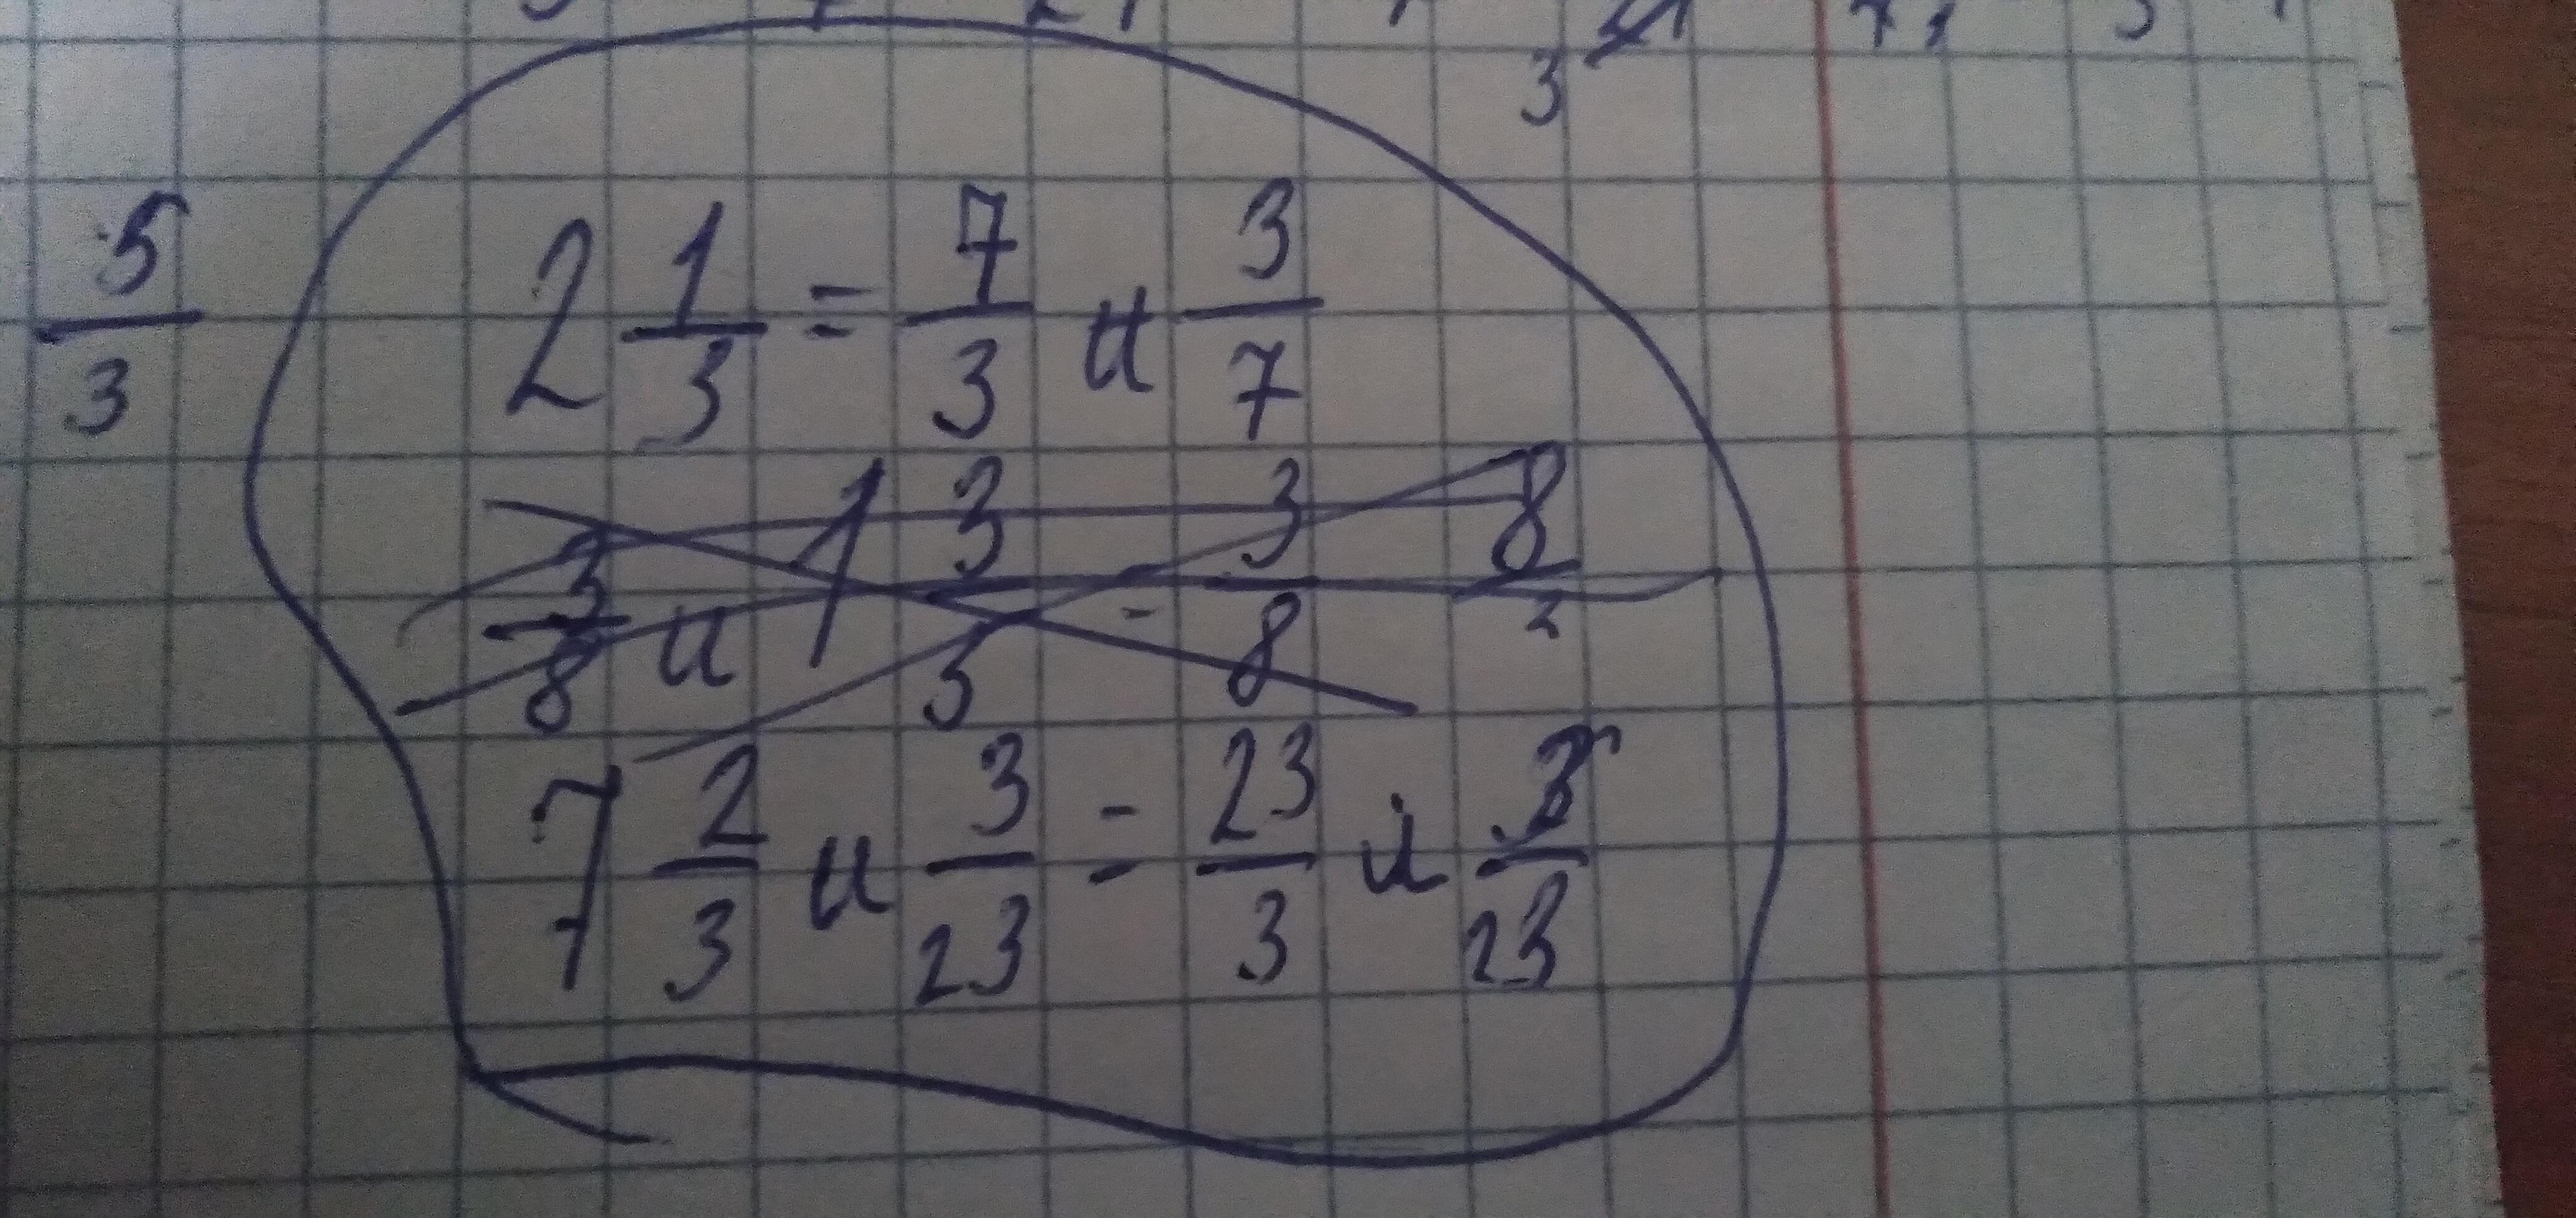 5/3
2 1/3 = 7/3 и 3/7
3/8 и 1 3/5 - 3/8 8/2
7 2/3 и 3/23 = 23/3 и 3/23